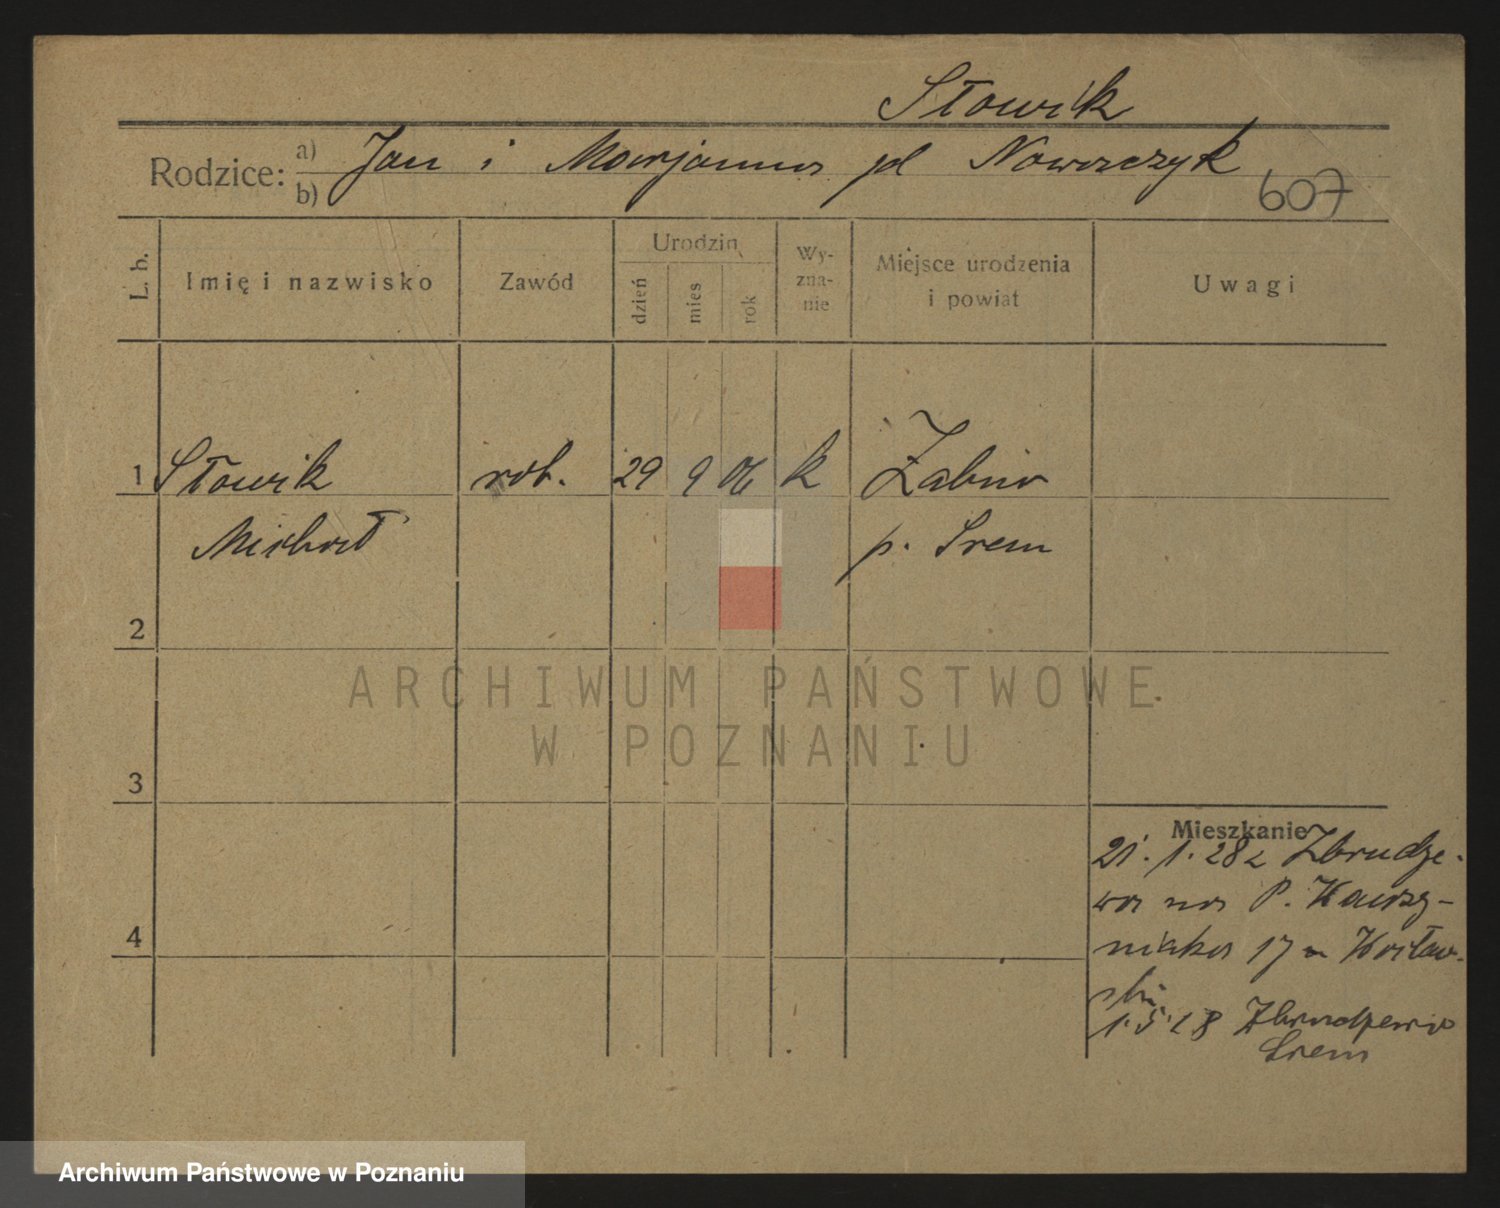 Słowik
Rodzice: a) Jan i Marjanna pd Nawrczyk
b)
607
L. b.
Imię i nazwisko
Zawód
Urodzin
dzień
mies
rok
Wy-
zna-
nie
Miejsce urodzenia
i powiat
Uwagi
1 Słowik rob. 29 9 06 k Żabno
Michał p. Śrem
2
3
4
Mieszkanie
21. 1. 28 z Zbrudze-
wa na P. Kawszy-
niaka 17 Wrocław-
ski
1.5.28 Zbrudzewo
Śrem
ARCHIWUM PAŃSTWOWE
W POZNANIU
Archiwum Państwowe w Poznaniu